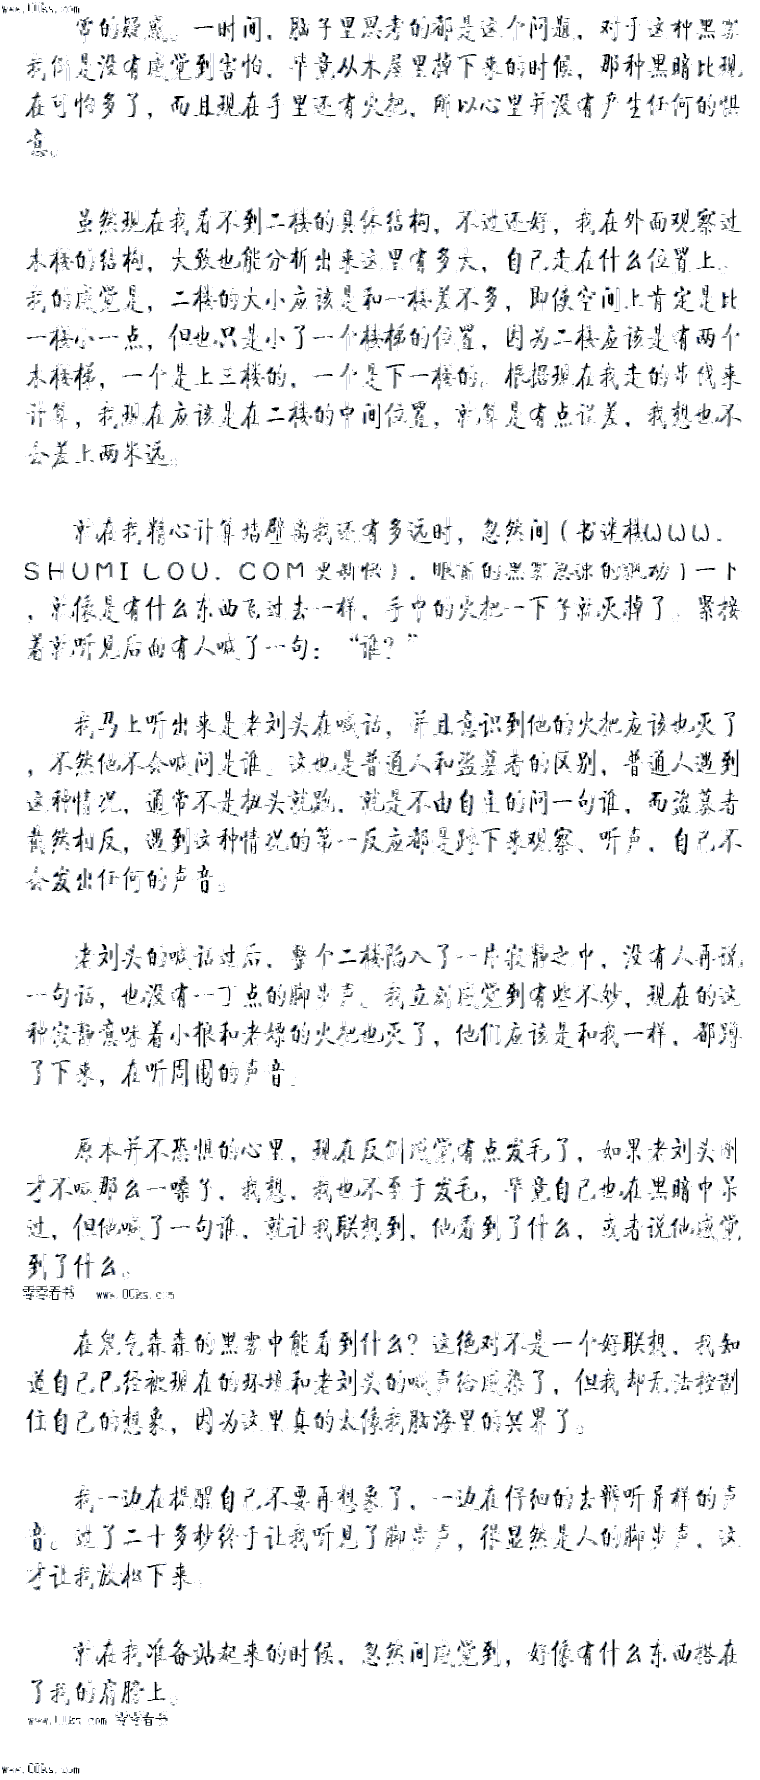 www.00ks.com
常的疑惑。一时间，脑子里思考的都是这个问题，对于这种黑雾
我倒是没有感觉到害怕，毕竟从木屋里掉下来的时候，那种黑暗比现
在可怕多了，而且现在手里还有火把，所以心里并没有产生任何的惧
意。
虽然现在我看不到二楼的具体结构，不过还好，我在外面观察过
木楼的结构，大致也能分析出来这里有多大，自己走在什么位置上。
我的感觉是，二楼的大小应该是和一楼差不多，即使空间上肯定是比
一楼小一点，但也只是小了一个楼梯的位置，因为二楼应该是有两个
木楼梯，一个是上三楼的，一个是下一楼的。根据现在我走的步伐来
计算，我现在应该是在二楼的中间位置，就算是有点误差，我想也不
会差上两米远。
就在我精心计算墙壁离我还有多远时，忽然间（书迷楼WWW.
SHUMILOU.COM更新快），眼前的黑雾急速的飘动）一下
，就像是有什么东西飞过去一样，手中的火把一下子就灭掉了。紧接
着就听见后面有人喊了一句：“谁？”
我马上听出来是老刘头在喊话，并且意识到他的火把应该也灭了
，不然他不会喊问是谁。这也是普通人和盗墓者的区别，普通人遇到
这种情况，通常不是扭头就跑，就是不由自主的问一句谁，而盗墓者
截然相反，遇到这种情况的第一反应都是蹲下来观察、听声，自己不
会发出任何的声音。
老刘头的喊话过后，整个二楼陷入了一片寂静之中，没有人再说
一句话，也没有一丁点的脚步声。我立刻感觉到有些不妙，现在的这
种寂静意味着小根和老绿的火把也灭了，他们应该是和我一样，都蹲
了下来，在听周围的声音。
原本并不恐惧的心里，现在反倒感觉有点发毛了，如果老刘头刚
才不喊那么一嗓子，我想，我也不至于发毛，毕竟自己也在黑暗中呆
过，但他喊了一句谁，就让我联想到，他看到了什么，或者说他感觉
到了什么。
零零看书 www.00ks.com
在鬼气森森的黑雾中能看到什么？这绝对不是一个好联想，我知
道自己已经被现在的环境和老刘头的喊声给感染了，但我却无法控制
住自己的想象，因为这里真的太像我脑海里的冥界了。
我一边在提醒自己不要再想象了，一边在仔细的去辨听异样的声
音。过了二十多秒终于让我听见了脚步声，很显然是人的脚步声，这
才让我放松下来。
就在我准备站起来的时候，忽然间感觉到，好像有什么东西搭在
了我的肩膀上。
www.00ks.com 零零看书
www.00ks.com